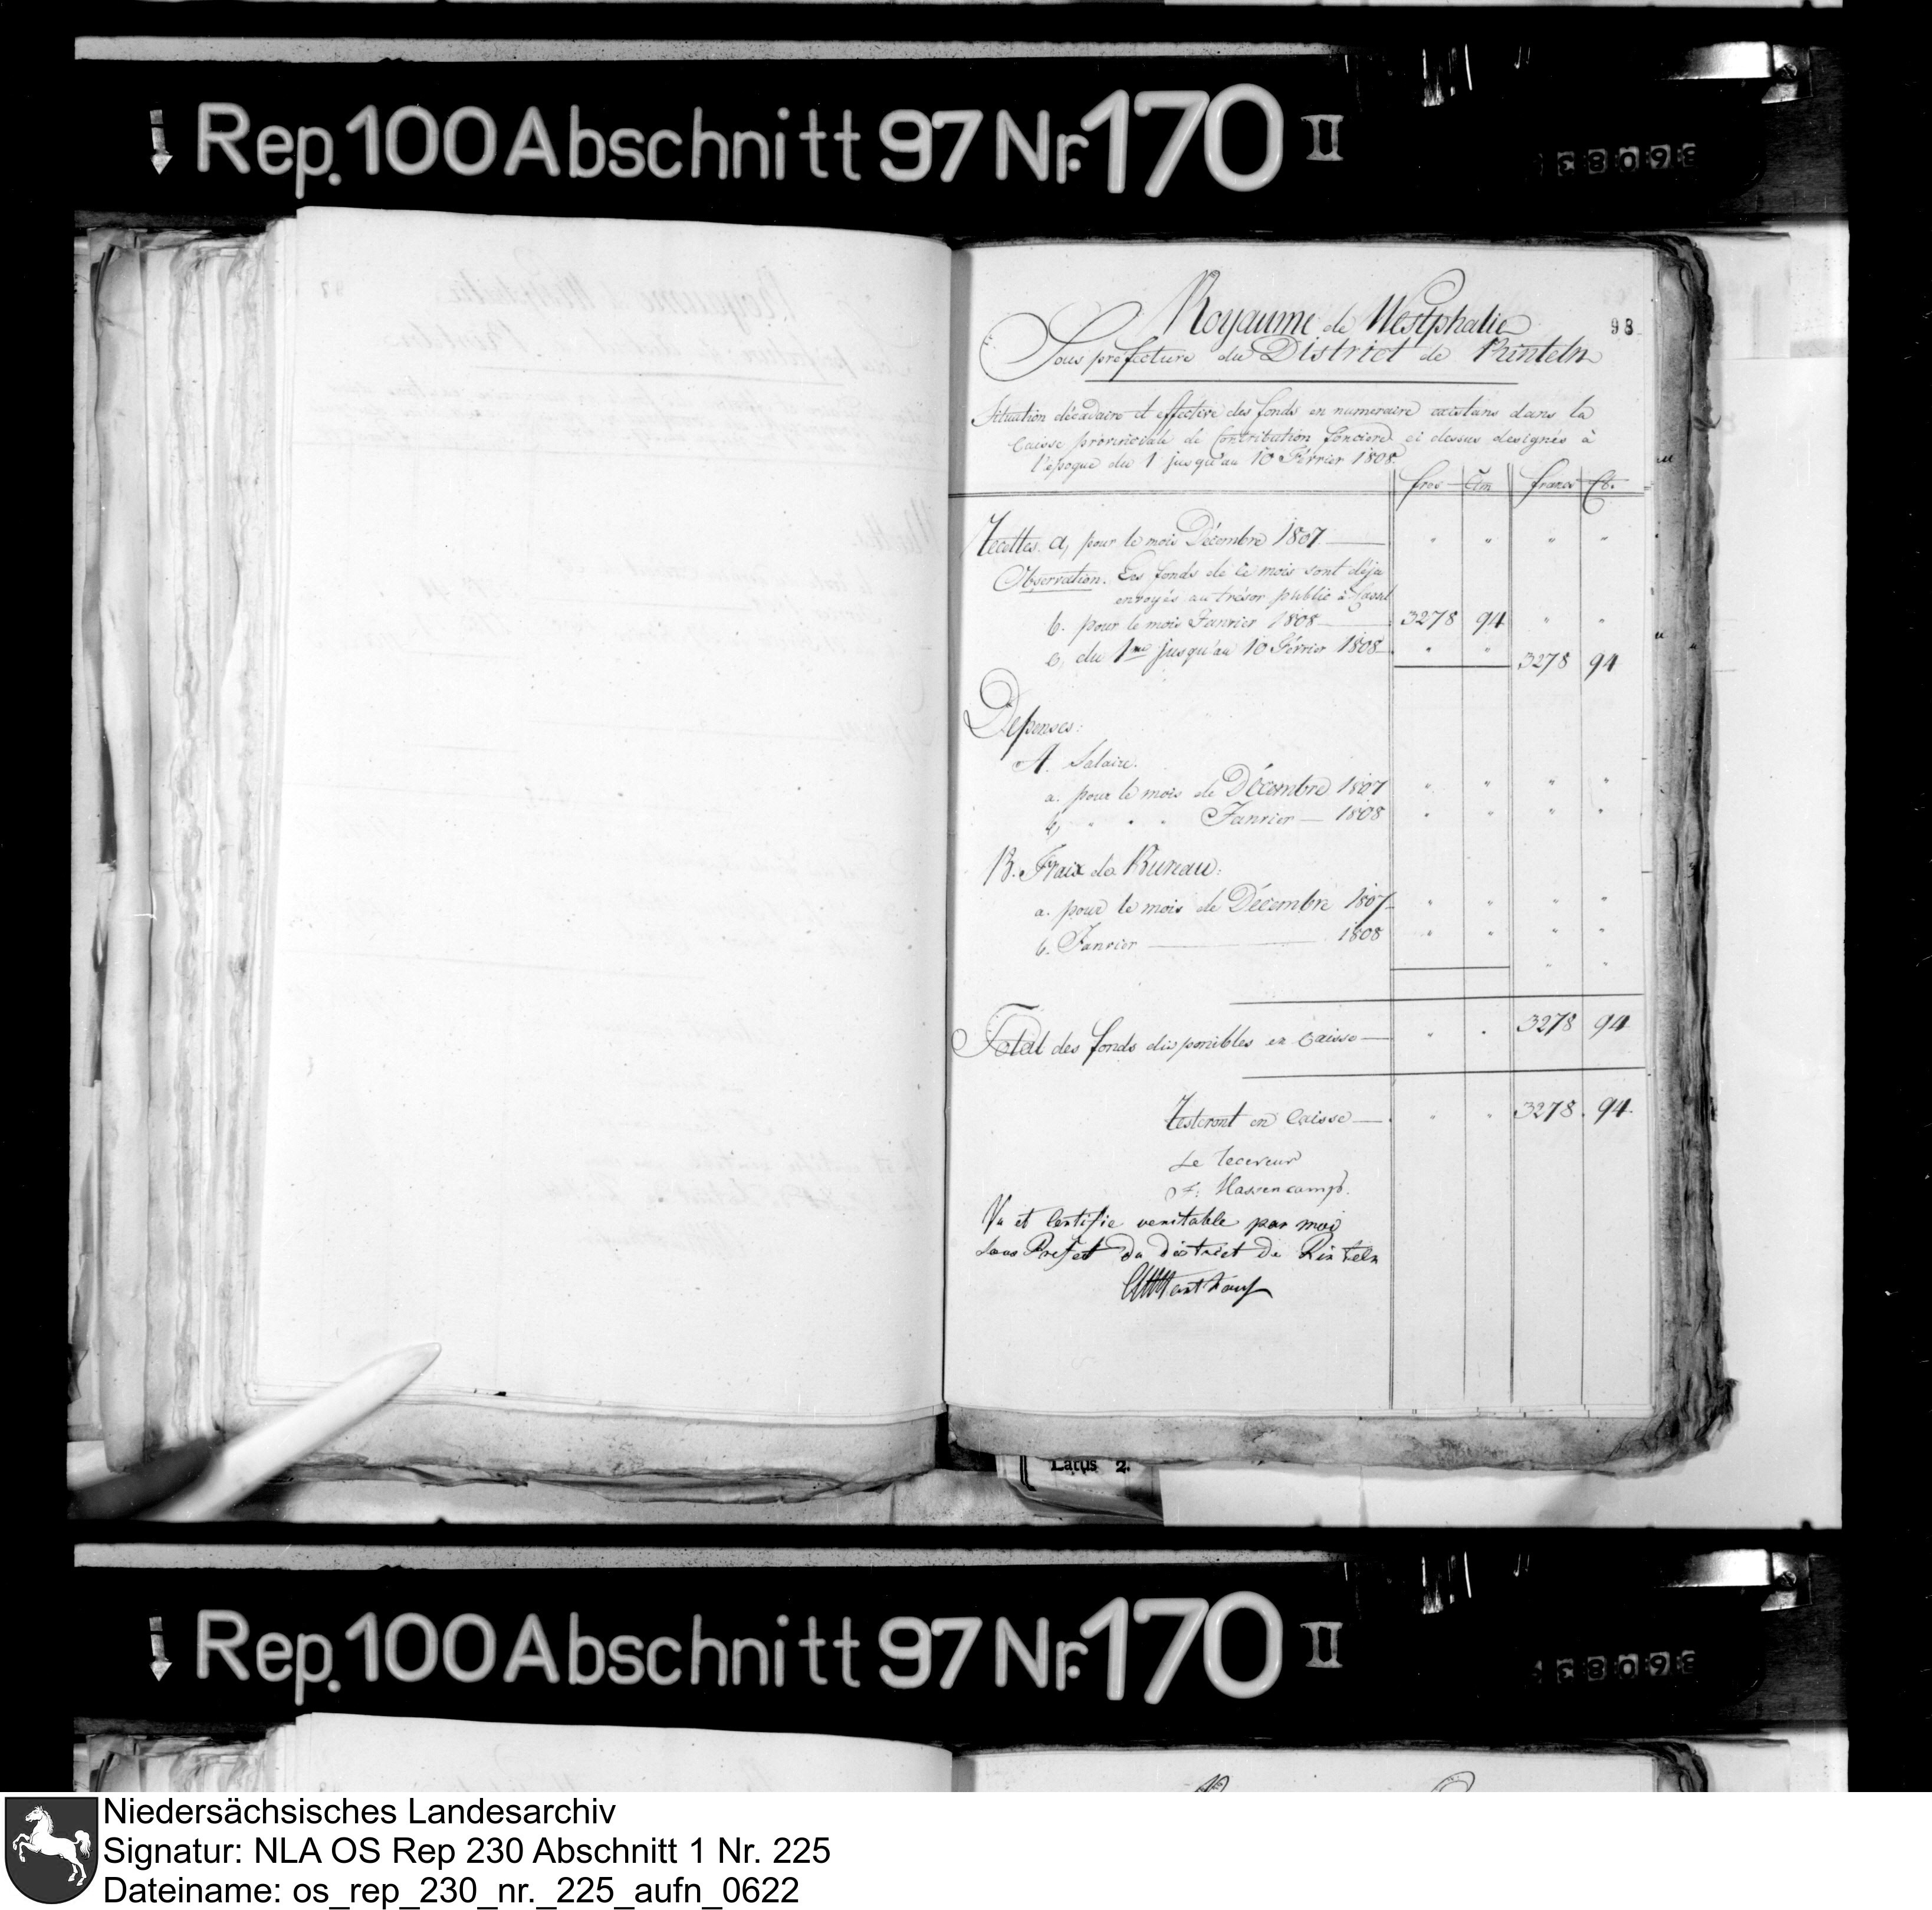 Rep. 100 Abschnitt 97 Nr. 170 II
98
Royaume de Westphalie
Sous prefecture du District de Rinteln
Situation décadaire et effective des fonds en numeraire existans dans la
Caisse provinciale de Contribution fonciere ci dessus designés à
l'epoque du 1 jusqu'au 10 Février 1808.
frcs Ctm francs Ct.
Recettes. a, pour le mois Décembre 1807. " " " "
Observation. Les fonds de ce mois sont déja
envoyés au trésor public à Cassel
b. pour le mois Janvier 1808 3278 94 " "
c, du 1me jusqu'au 10 Février 1808 " " 3278 94
Depenses:
A. Salaire.
a. pour le mois de Décembre 1807 " " " "
b, " " " Janvier 1808 " " " "
B. Fraix de Bureau:
a. pour le mois de Décembre 1807 " " " "
b. Janvier 1808 " " " "
" "
Total des fonds disponibles en Caisse " " 3278 94
Resteront en Caisse " " 3278. 94.
Le Receveur
F: Hassencamp.
Vu et Certifie veritable par moi
Sous Prefet du district de Rinteln
Latus 2.
Rep. 100 Abschnitt 97 Nr. 170 II
Niedersächsisches Landesarchiv
Signatur: NLA OS Rep 230 Abschnitt 1 Nr. 225
Dateiname: os_rep_230_nr._225_aufn_0622